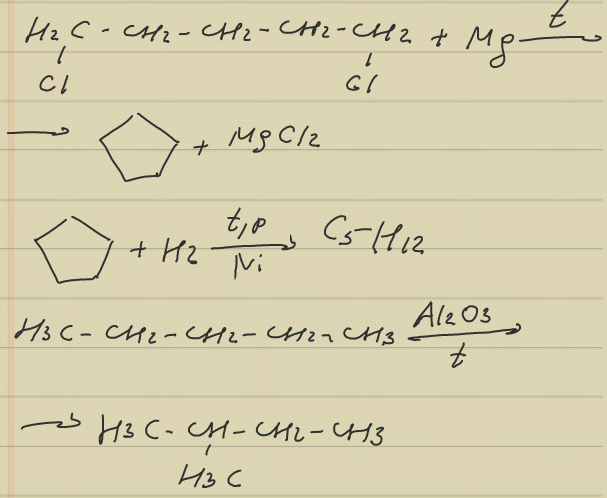 H2C - CH2 - CH2 - CH2 - CH2 + Mg t→
Cl Cl
→ + MgCl2
+ H2 t,p→ Ni C5H12
H3C - CH2 - CH2 - CH2 - CH3 Al2O3→ t
→ H3C - CH - CH2 - CH3
H3C